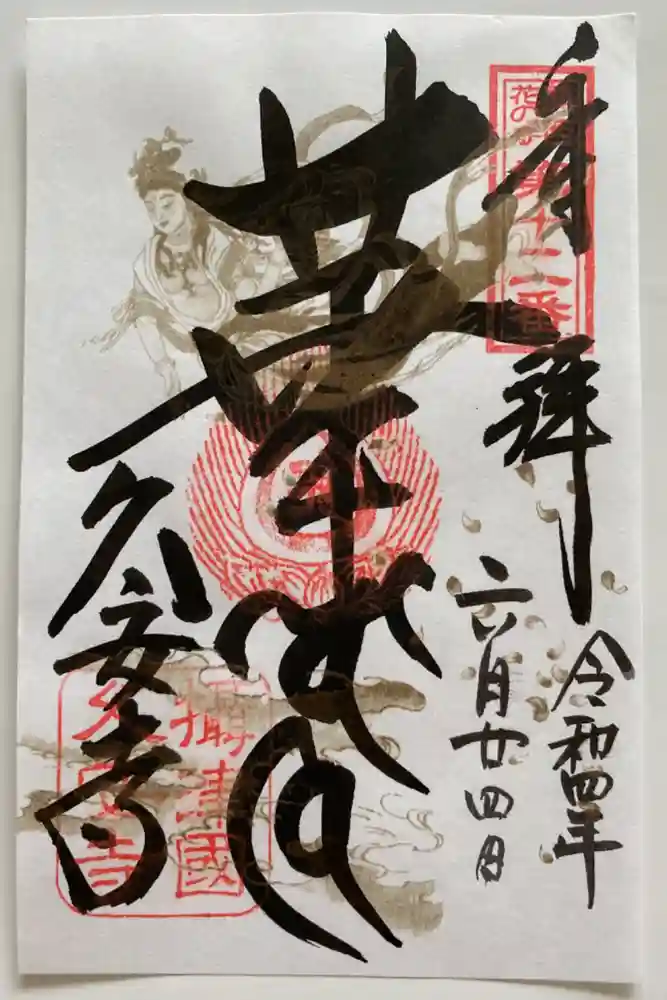 奉拝
関西
花の寺
第十二番
令和四年
六月廿四日
華
久安寺
攝津國
久安寺